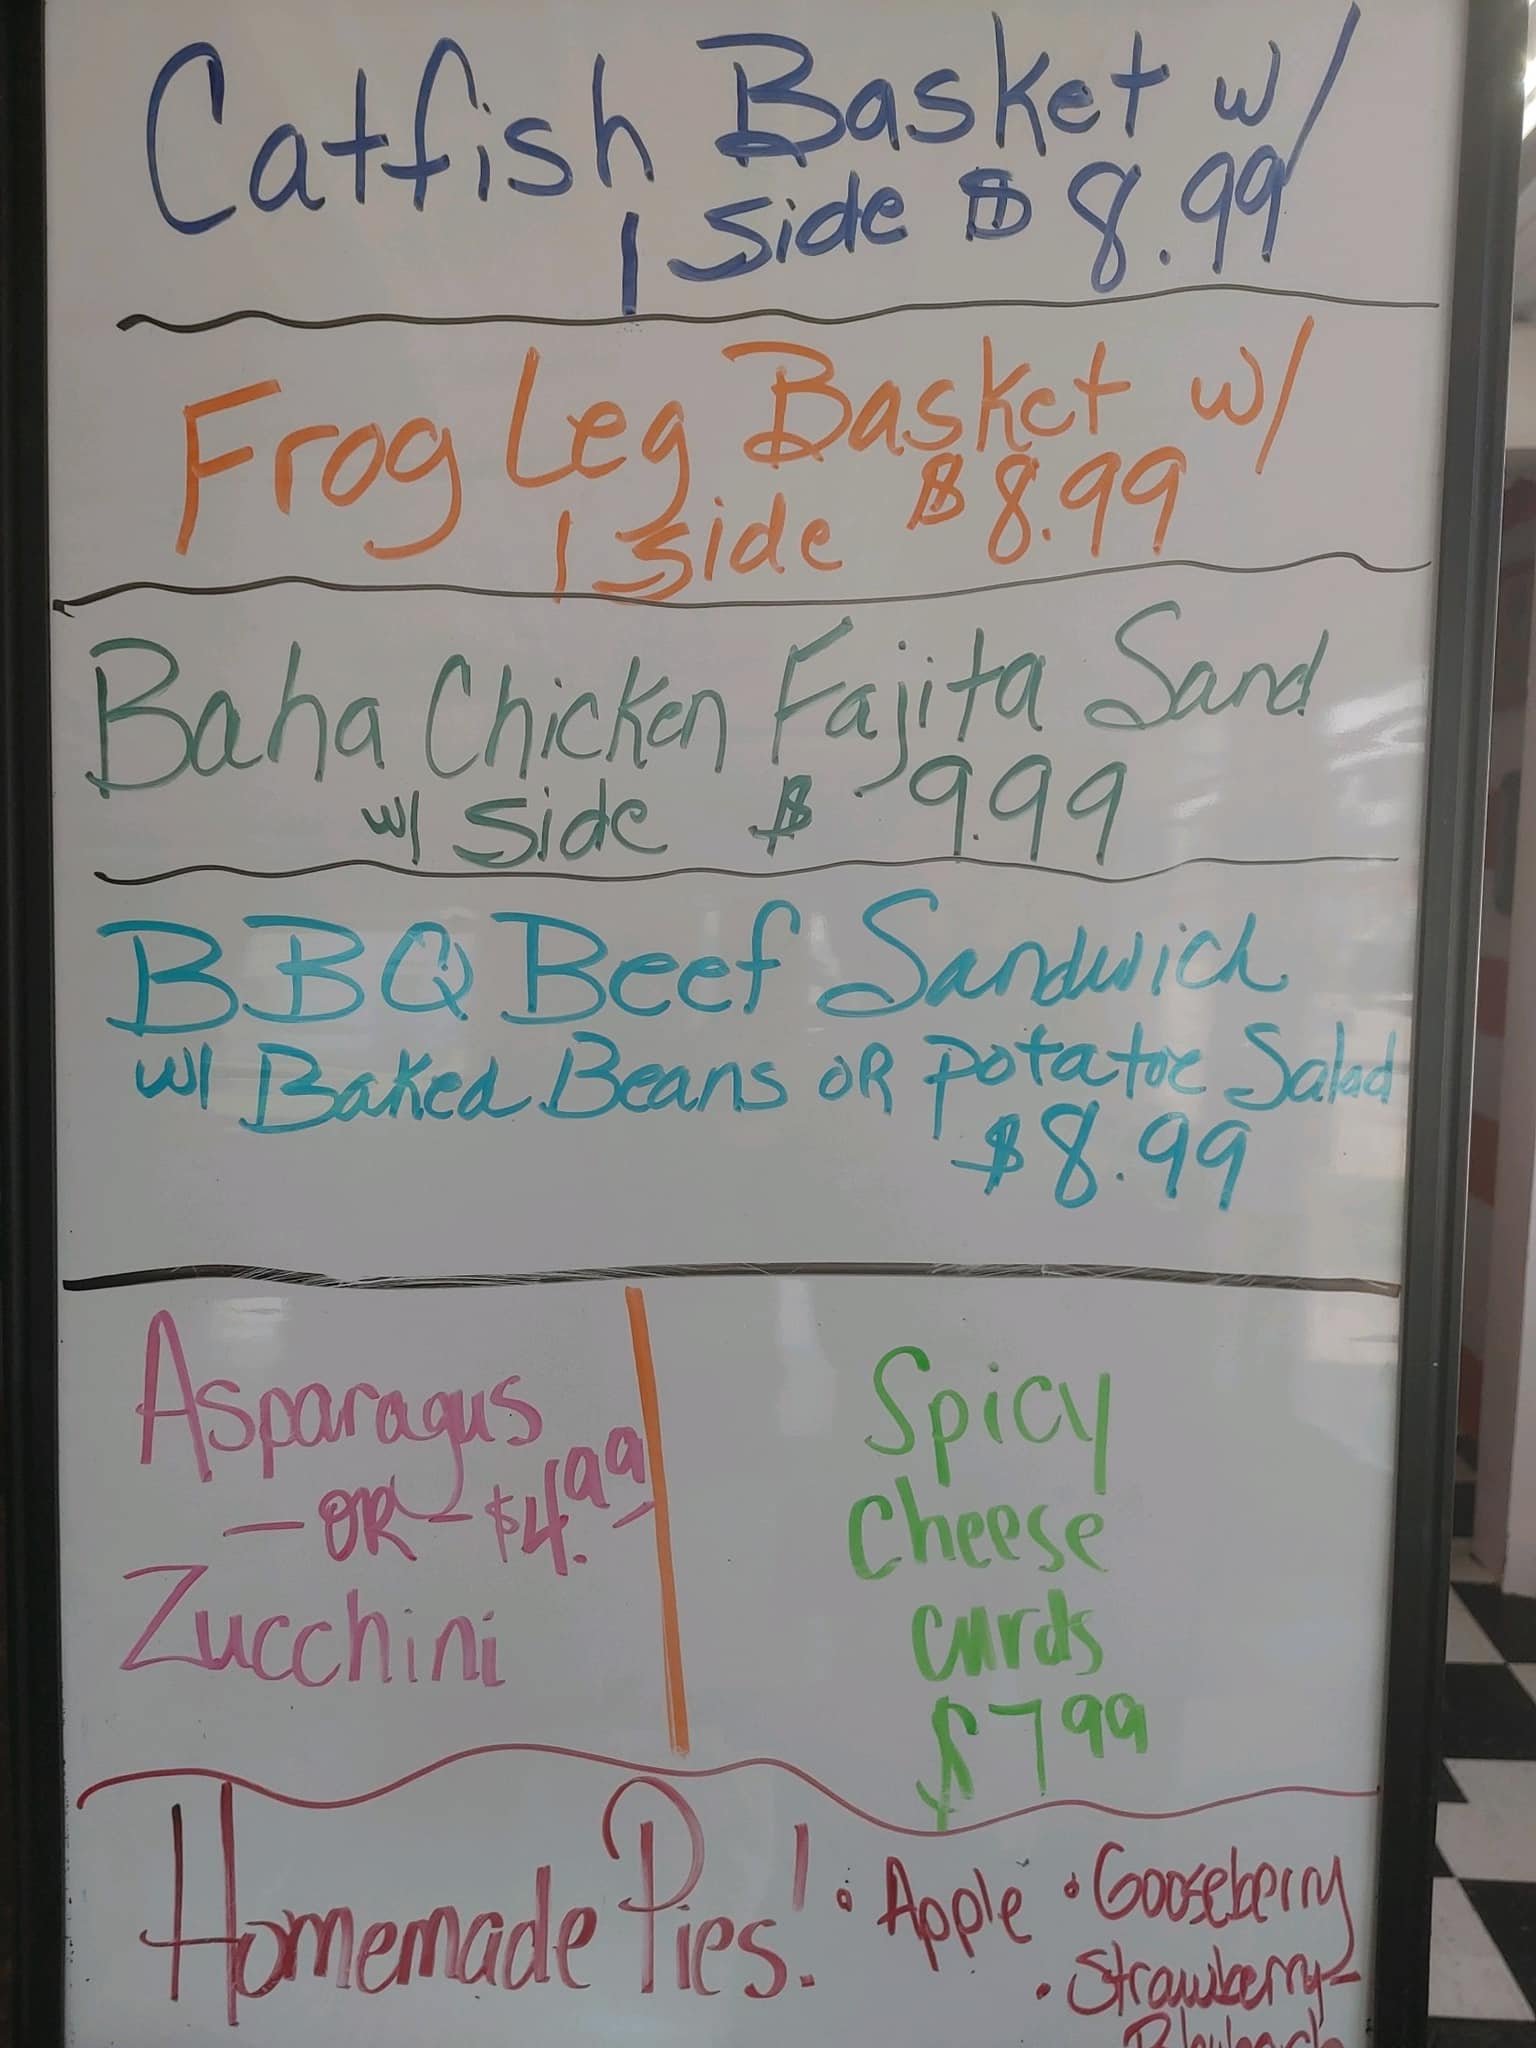 Catfish Basket w/
1 Side $8.99
Frog Leg Basket w/
1 Side $8.99
Baha Chicken Fajita Sand
w/ Side $9.99
BBQ Beef Sandwich
w/ Baked Beans OR Potatoe Salad
$8.99
Asparagus
- OR - $4.99
Zucchini
Spicy
Cheese
Curds
$7 99
Homemade Pies! • Apple • Gooseberry
• Strawberry-
Rhubarb